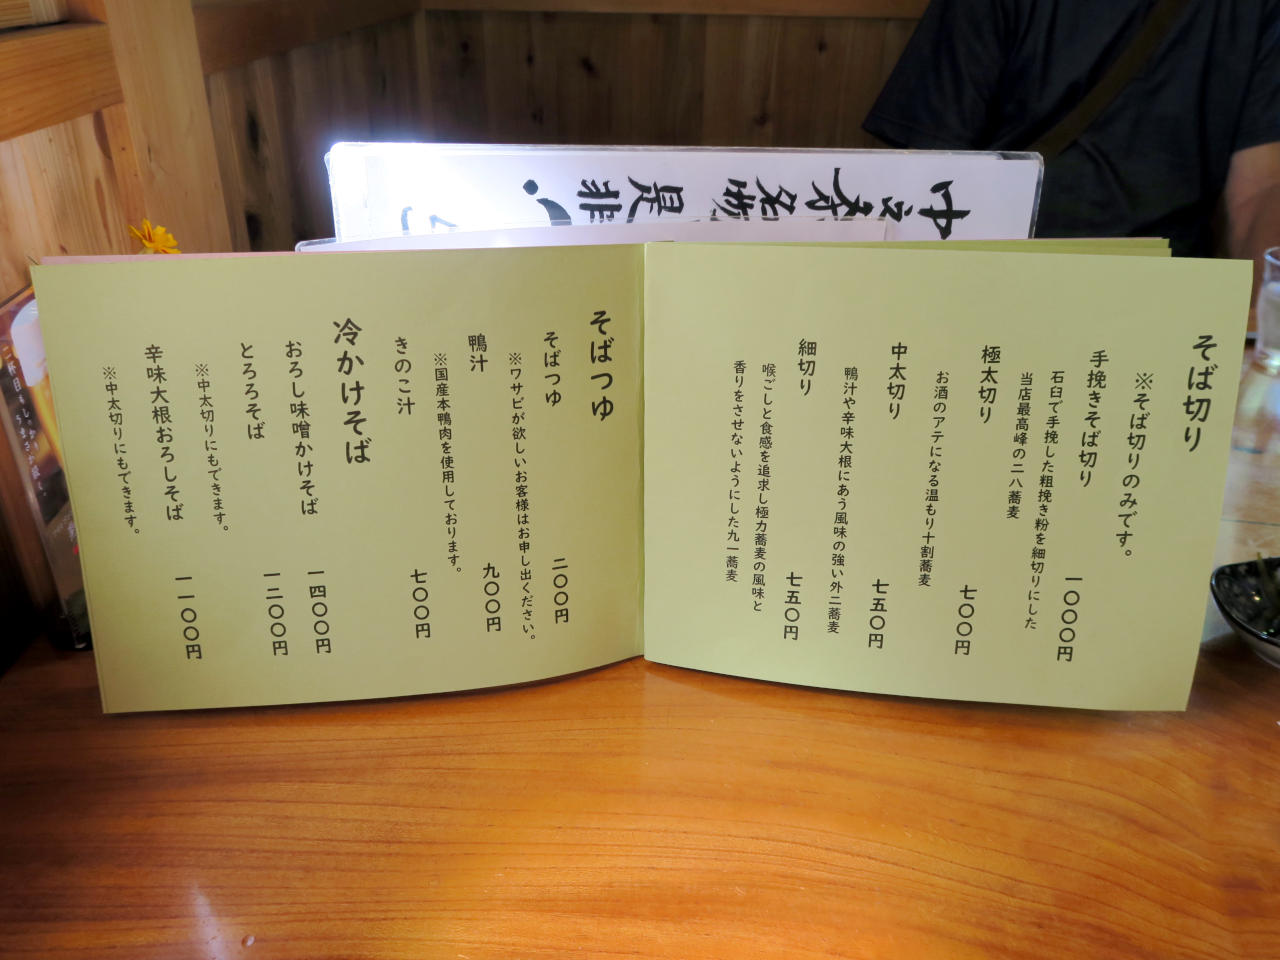 そば切り
※そば切りのみです。
手挽きそば切り 一〇〇〇円
石臼で手挽した粗挽き粉を細切りにした
当店最高峰の二八蕎麦
極太切り 七〇〇円
お酒のアテになる温もり十割蕎麦
中太切り 七五〇円
鴨汁や辛味大根にあう風味の強い外二蕎麦
細切り 七五〇円
喉ごしと食感を追求し極力蕎麦の風味と
香りをさせないようにした九一蕎麦
そばつゆ
そばつゆ 二〇〇円
※ワサビが欲しいお客様はお申し出ください。
鴨汁 九〇〇円
※国産本鴨肉を使用しております。
きのこ汁 七〇〇円
冷かけそば
おろし味噌かけそば 一四〇〇円
とろろそば 一二〇〇円
※中太切りにもできます。
辛味大根おろしそば 一一〇〇円
※中太切りにもできます。
名物
是非
二杯目も